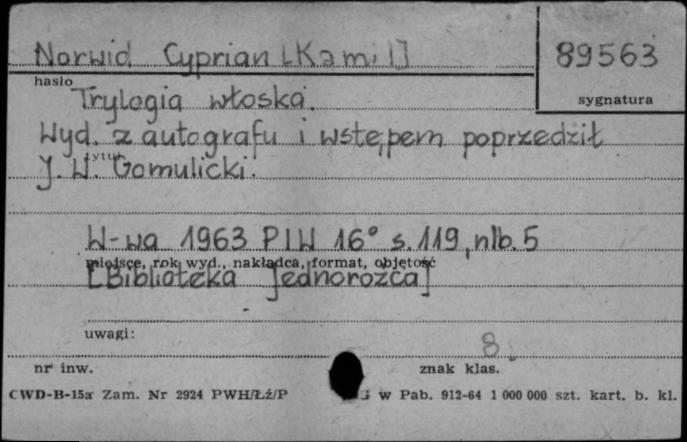 Norwid Cyprian [Kamil]
89563
hasło
sygnatura
Trylogia włoska.
Wyd. z autografu i wstępem poprzedził
tytuł
J. W. Gomulicki.
W-wa 1963 PIW 16° s. 119, nlb. 5
miejsce, rok wyd., nakładca, format, objętość
[Biblioteka Jednorożca]
uwagi:
8
nr inw.
znak klas.
CWD-B-15a Zam. Nr 2924 PWH/Łź/P
G w Pab. 912-64 1 000 000 szt. kart. b. kl.